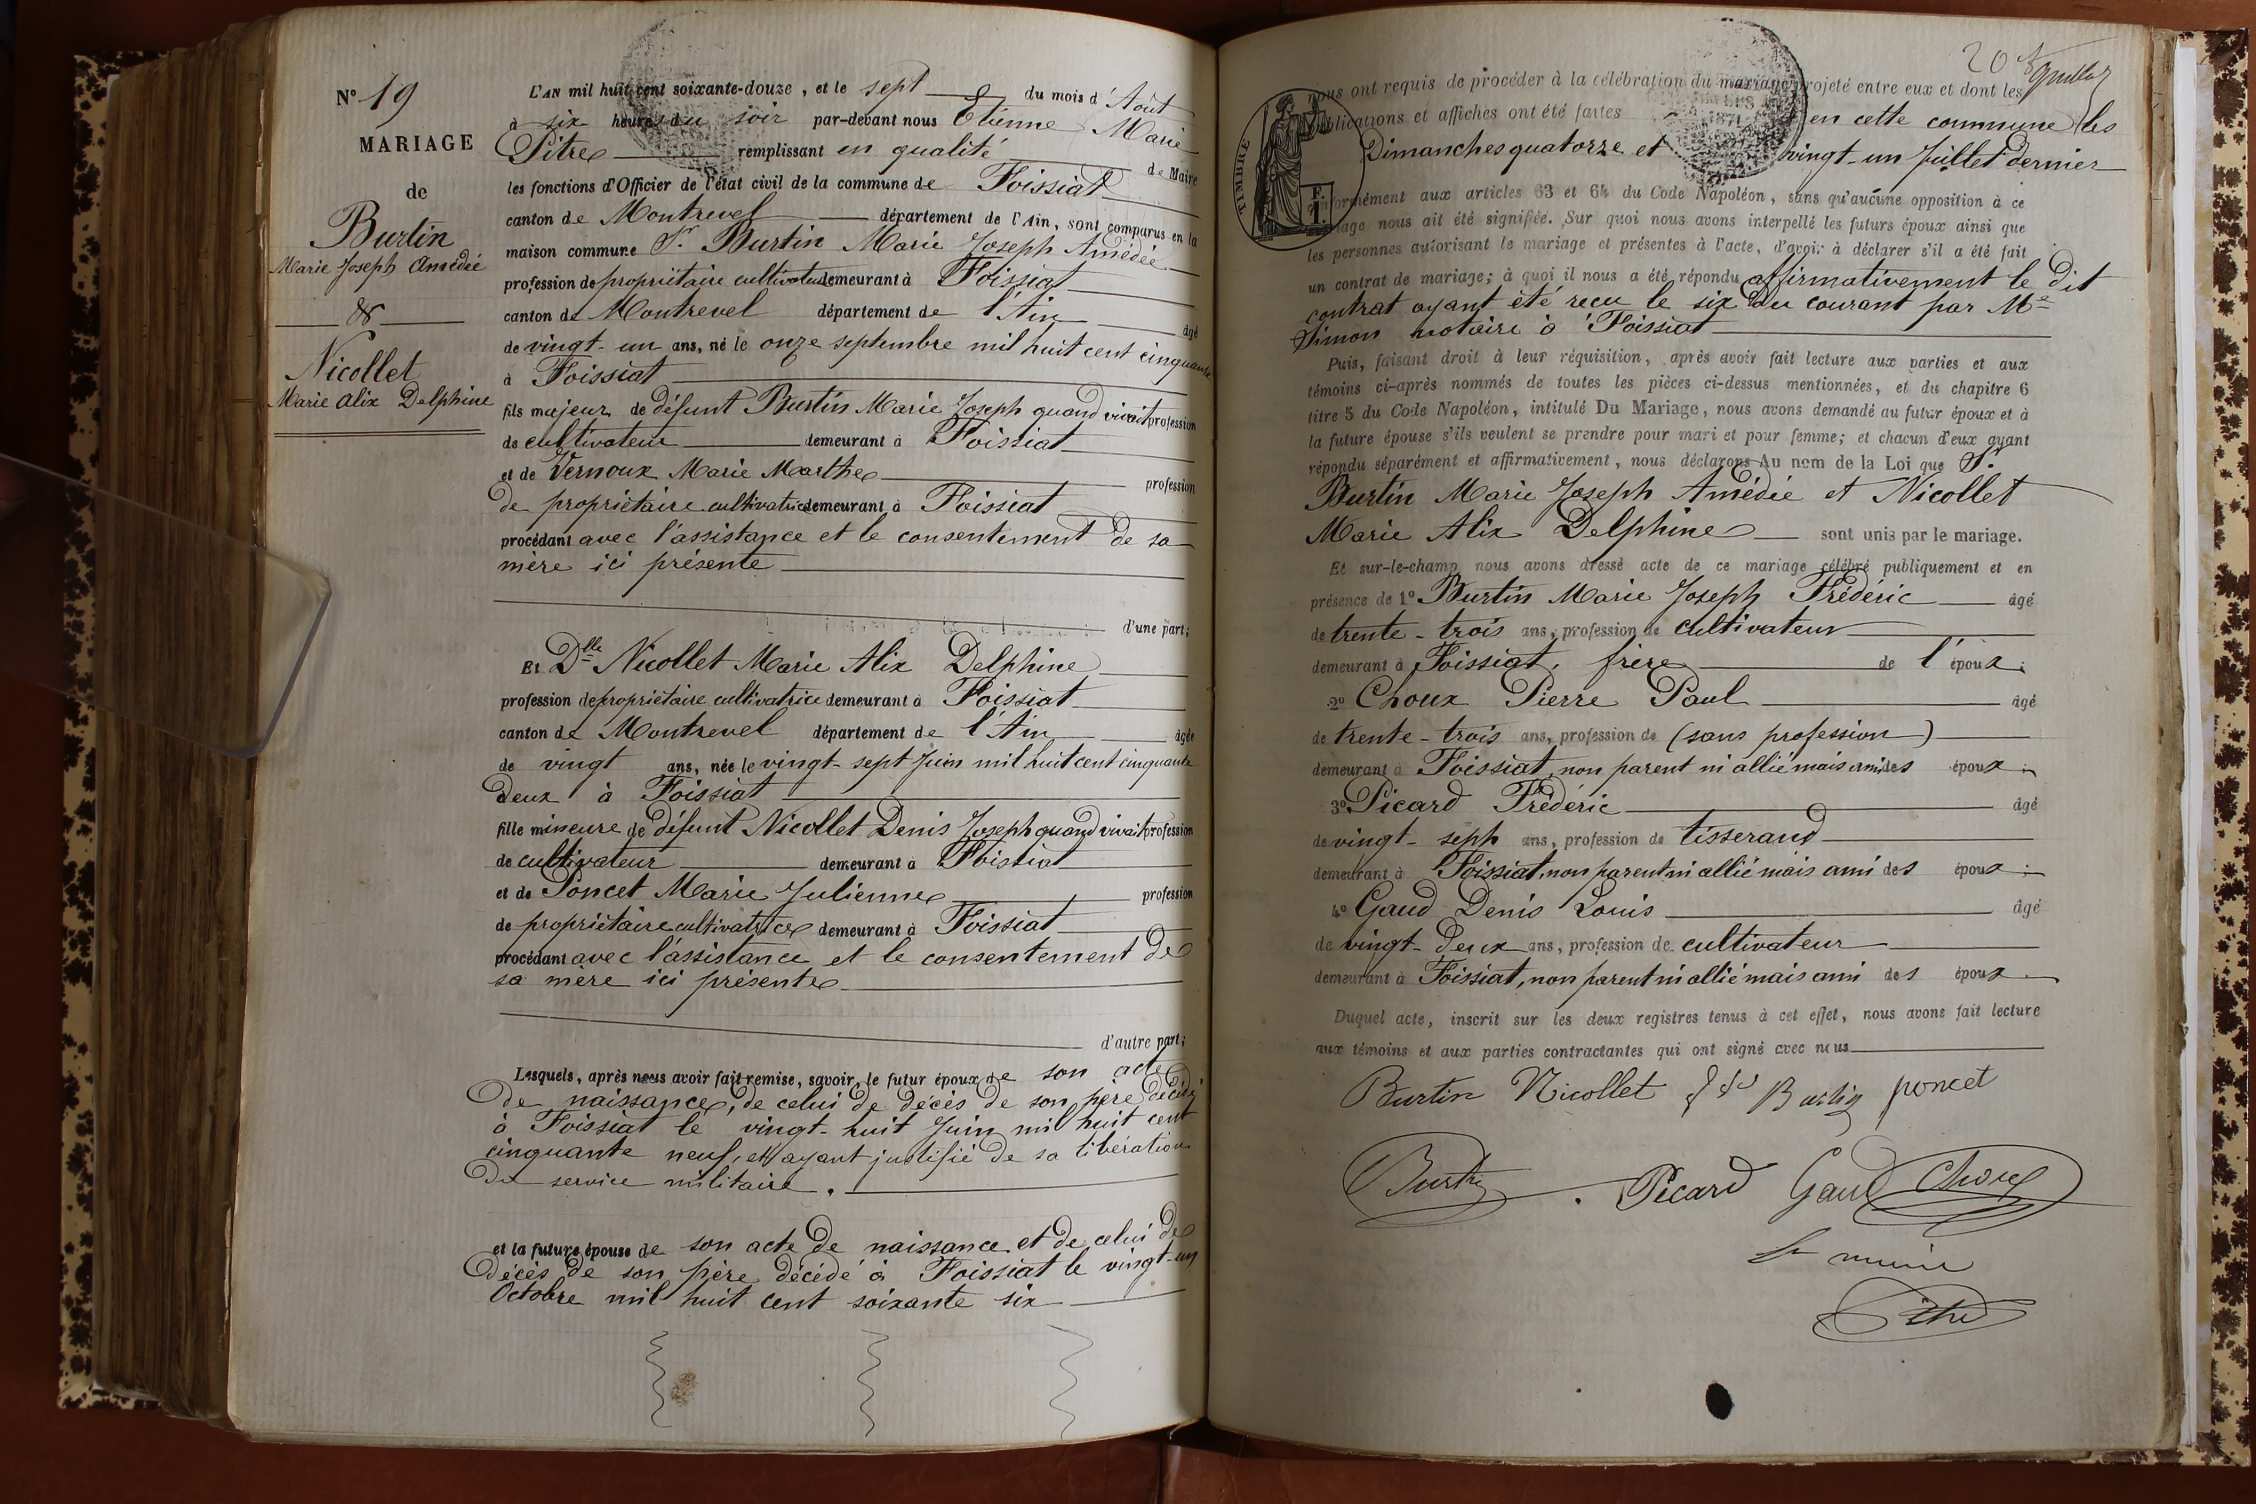 N° 19
MARIAGE
de
Burtin
Marie Joseph Amédée
&
Nicollet
Marie Alix Delphine
L'AN mil huit cent soixante-douze, et le sept du mois d'Août
à six heures du soir par-devant nous Etienne Marie
Pitre remplissant en qualité de Maire
les fonctions d'Officier de l'état civil de la commune de Foissiat
canton de Montrevel département de l'Ain, sont comparus en la
maison commune Sr Burtin Marie Joseph Amédée
profession de propriétaire cultivateur demeurant à Foissiat
canton de Montrevel département de l'Ain âgé
de vingt-un ans, né le onze septembre mil huit cent cinquante
à Foissiat
fils majeur de défunt Burtin Marie Joseph quand vivait profession
de cultivateur demeurant à Foissiat
et de Vernoux Marie Marthe profession
de propriétaire cultivatrice demeurant à Foissiat
procédant avec l'assistance et le consentement de sa
mère ici présente
d'une part;
Et Dlle Nicollet Marie Alix Delphine
profession de propriétaire cultivatrice demeurant à Foissiat
canton de Montrevel département de l'Ain âgée
de vingt ans, née le vingt-sept Juin mil huit cent cinquante
deux à Foissiat
fille mineure de défunt Nicollet Denis Joseph quand vivait profession
de cultivateur demeurant à Foissiat
et de Poncet Marie Julienne profession
de propriétaire cultivatrice demeurant à Foissiat
procédant avec l'assistance et le consentement de
sa mère ici présente
d'autre part;
Lesquels, après nous avoir fait remise, savoir, le futur époux de son acte
de naissance, de celui de décès de son père décédé
à Foissiat le vingt-huit Juin mil huit cent
cinquante neuf, et ayant justifié de sa libération
du service militaire.
et la future épouse de son acte de naissance et de celui de
décès de son père décédé à Foissiat le vingt-un
Octobre mil huit cent soixante six
20
nous ont requis de procéder à la célébration du mariage projeté entre eux et dont les
publications et affiches ont été faites en cette commune les
Dimanches quatorze et vingt-un Juillet dernier
conformément aux articles 63 et 64 du Code Napoléon, sans qu'aucune opposition à ce
mariage nous ait été signifiée. Sur quoi nous avons interpellé les futurs époux ainsi que
les personnes autorisant le mariage et présentes à l'acte, d'avoir à déclarer s'il a été fait
un contrat de mariage; à quoi il nous a été répondu affirmativement le dit
contrat ayant été reçu le six du courant par Me
Simon notaire à Foissiat
TIMBRE
Puis, faisant droit à leur réquisition, après avoir fait lecture aux parties et aux
témoins ci-après nommés de toutes les pièces ci-dessus mentionnées, et du chapitre 6
titre 5 du Code Napoléon, intitulé Du Mariage, nous avons demandé au futur époux et à
la future épouse s'ils veulent se prendre pour mari et pour femme; et chacun d'eux ayant
répondu séparément et affirmativement, nous déclarons Au nom de la Loi que Sr
Burtin Marie Joseph Amédée et Nicollet
Marie Alix Delphine sont unis par le mariage.
Et sur-le-champ nous avons dressé acte de ce mariage célébré publiquement et en
présence de 1° Burtin Marie Joseph Frédéric âgé
de trente-trois ans, profession de cultivateur
demeurant à Foissiat, frère de l'époux;
2° Choux Pierre Paul âgé
de trente-trois ans, profession de (sans profession)
demeurant à Foissiat, non parent ni allié mais ami des époux;
3° Picard Frédéric âgé
de vingt-sept ans, profession de tisserand
demeurant à Foissiat, non parent ni allié mais ami des époux;
4° Gaud Denis Louis âgé
de vingt-deux ans, profession de cultivateur
demeurant à Foissiat, non parent ni allié mais ami des époux.
Duquel acte, inscrit sur les deux registres tenus à cet effet, nous avons fait lecture
aux témoins et aux parties contractantes qui ont signé avec nous
Burtin Nicollet Burtin poncet
Burtin Picard Gaud Choux
le maire
Pitre